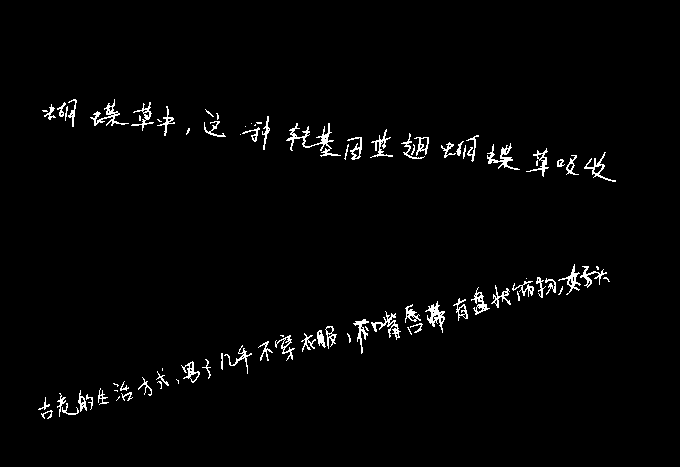 蝴蝶草中，这种转基因蓝翅蝴蝶草吸收
古老的生活方式，男子几乎不穿衣服，下嘴唇带有盘状饰物，女子头